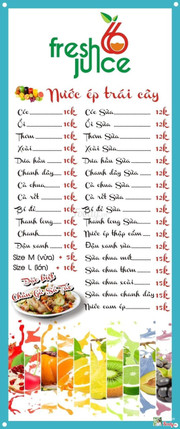 fresh
juice
Nước ép trái cây
Cóc 10k
Ổi 10k
Thơm 10k
Xoài 10k
Dưa hấu 10k
Chanh dây 10k
Cà chua 10k
Cà rốt 10k
Bí đỏ 10k
Thanh long 10k
Chanh 10k
Đậu xanh 10k
Size M (vừa) * 5k
Size L (lớn) * 10k
Đặc biệt
Cóc Sữa 12k
Ổi Sữa 12k
Thơm Sữa 12k
Xoài Sữa 12k
Dưa hấu Sữa 12k
Chanh dây Sữa 12k
Cà chua Sữa 12k
Cà rốt Sữa 12k
Bí đỏ Sữa 12k
Thanh long Sữa 12k
Nước ép thập cẩm 15k
Đậu xanh sữa 12k
Sữa chua mít 15k
Sữa chua thơm 15k
Sữa chua xoài 15k
Sữa chua chanh dây 15k
Nước cam ép 15k